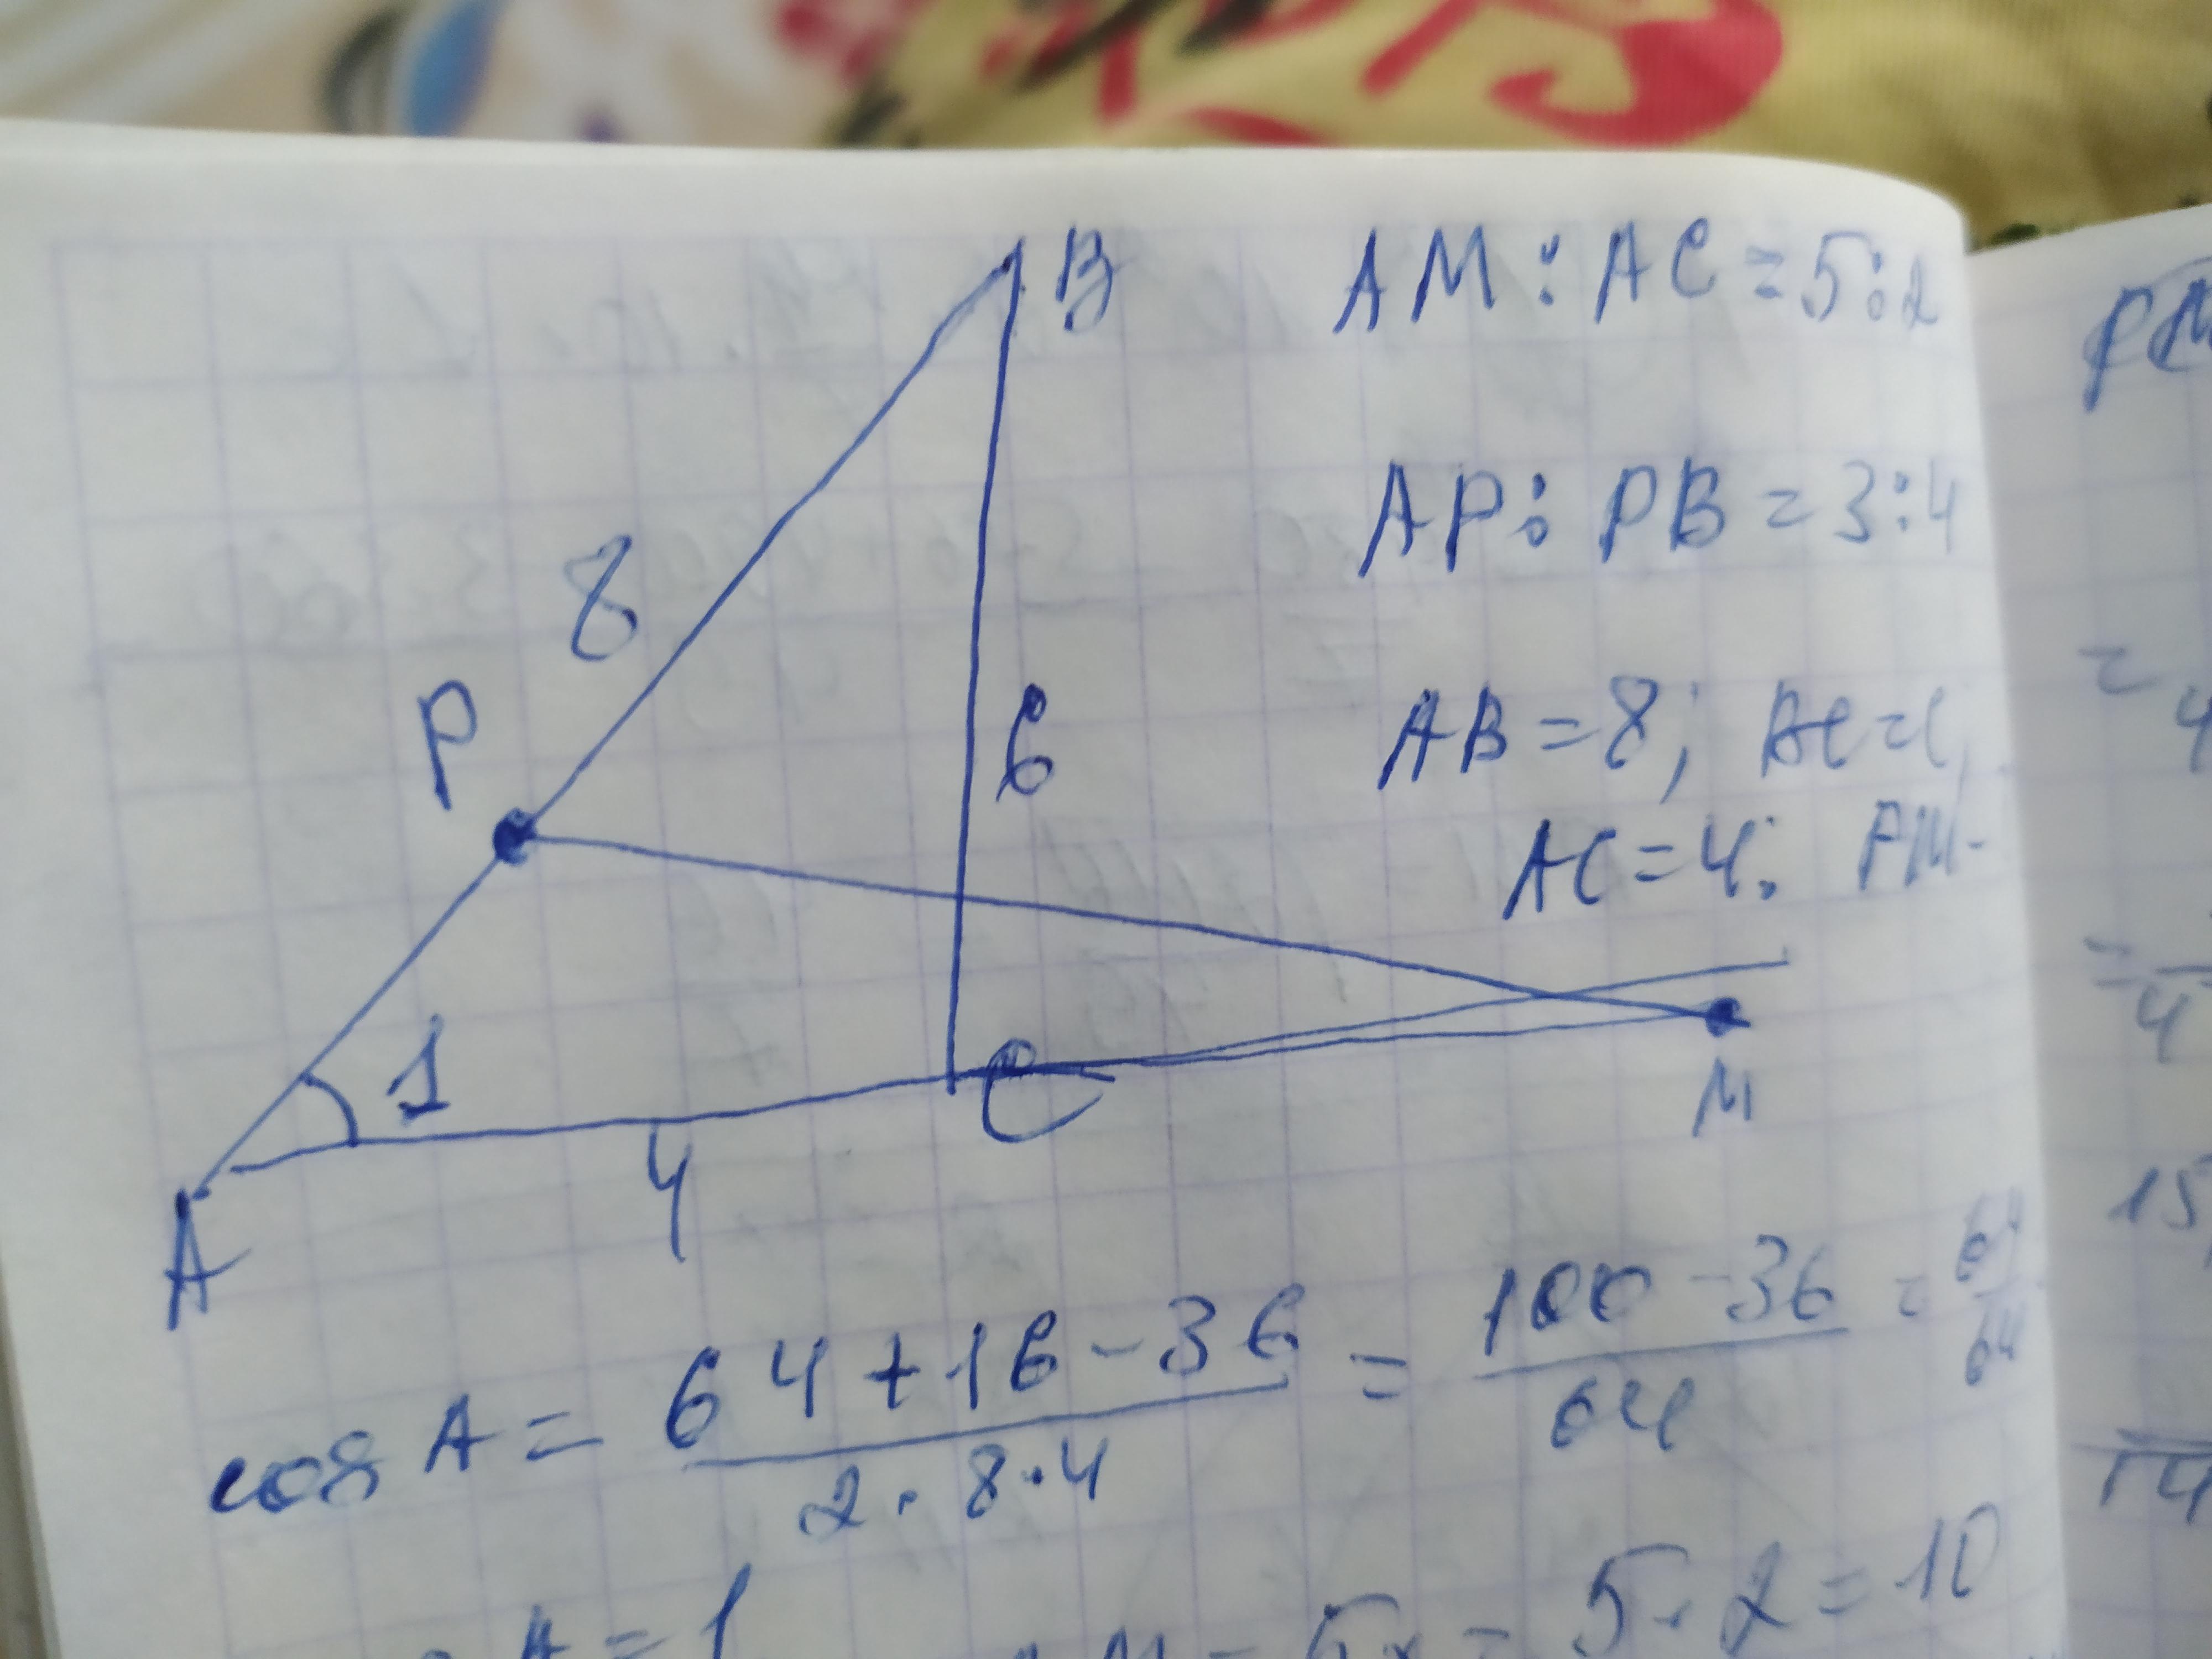 B
AM : AC = 5:2
AP : PB = 3:4
8
P
6
AB = 8; BC =
AC = 4;
1
C
M
4
A
cos A = (64+16-36)/(2·8·4) = (100-36)/64 = 64/64
A = 1
= 5x = 5·2 = 10
PM
=
4
=
4
15
14